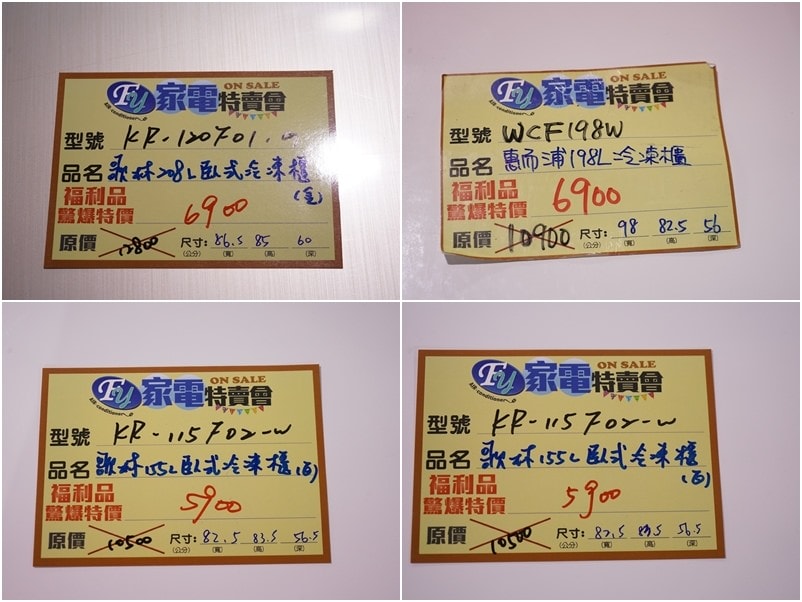 ON SALE
FY 家電特賣會
Air-conditioner
型號 KR-120F01.w
品名 歌林208L臥式冷凍櫃
福利品
驚爆特價 6900
原價 12800 尺寸: 86.5 85 60
(公分) (寬) (高) (深)
ON SALE
FY 家電特賣會
Air-conditioner
型號 WCF198W
品名 惠而浦198L冷凍櫃
福利品
驚爆特價 6900
原價 10900 尺寸: 98 82.5 56
(公分) (寬) (高) (深)
ON SALE
FY 家電特賣會
Air-conditioner
型號 KR-115F02-W
品名 歌林155L臥式冷凍櫃(白)
福利品
驚爆特價 5900
原價 10500 尺寸: 82.5 83.5 56.5
(公分) (寬) (高) (深)
ON SALE
FY 家電特賣會
Air-conditioner
型號 KR-115F02-W
品名 歌林155L臥式冷凍櫃
(白)
福利品
驚爆特價 5900
原價 10500 尺寸: 82.5 83.5 56.5
(公分) (寬) (高) (深)